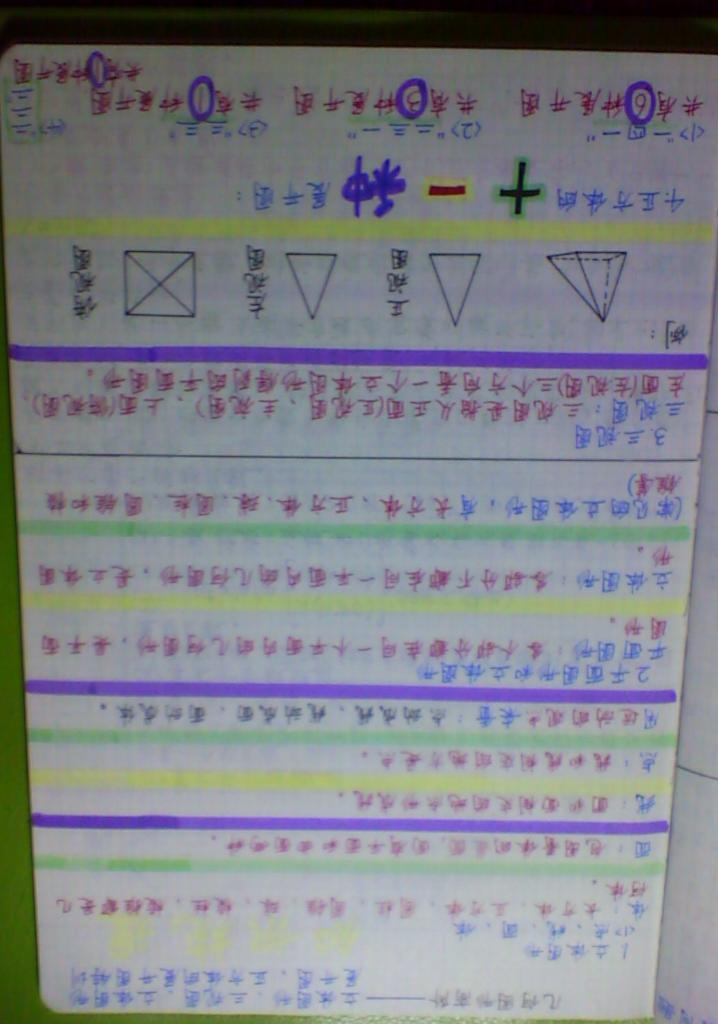 几何图形初步——立体图形、三视图、立体图形
展开图、正方体的展开图
1.立体图形
<1>点、线、面、体
体：长方体、正方体、圆柱、圆锥、球、棱柱、棱锥都是几
何体。
面：包围着体的是面,面有平面和曲面两种
线：面和面相交的地方形成线
点：线和线相交的地方是点。
用运动的观点来看：点动成线，线动成面，面动成体。
2.平面图形和立体图形
平面图形：各个部分都在同一个平面内的几何图形，是平面
图形。
立体图形：各部分不都在同一平面内的几何图形，是立体图
形。
(常见的立体图形，有长方体、正方体、球、圆柱、圆锥和棱
锥等)
3.三视图
三视图：三视图是指从正面(正视图、主视图)、上面(俯视图)、
左面(左视图)三个方向看一个立体图形得到的平面图形。
例：
正视图
左视图
俯视图
4.正方体的十一种展开图：
<1>"一四一"
共有6种展开图
<2>"二三一"
共有3种展开图
<3>"三三"
共有1种展开图
<4>"二二二"
共有1种展开图